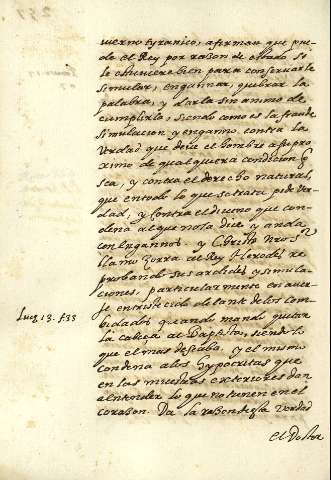 vierno tyranico, afirman que pue-
de el Rey por razon de estado si
le estuviere bien para conservarse
simular, engañar, quebrar la
palabra, y darla sin animo de
cumplirla, siendo como es la fraude
simulacion y engaño contra la
verdad que deve el hombre a su pro
ximo de qualquiera condicion q
sea, y contra el derecho natural,
que en todo lo que se trata pide ver
dad, y contra el divino que con
dena al que no la dice y anda
con engaños. y Christo nro Sr
llamo zorra al Rey Herodes re
probando sus ardides y simula
ciones, particularmente en aver
se entristecido delante de los com
bidados quando mando quitar
Luc. 13. f33
la cabeça al Baptista, siendo lo
que el mas deseaba. y el mismo
condena a los hypocritas que
en las muestras exteriores dan
a entender lo que no tienen en el
corazon. Da la razon desta verdad
el Doctor